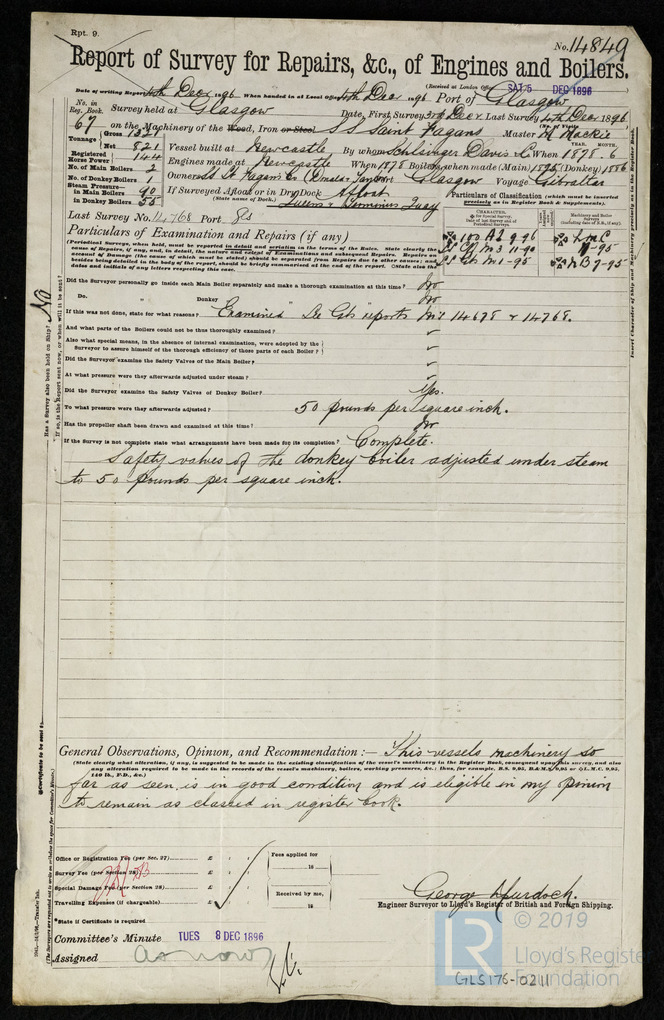 Rpt. 9.
No. 14849
Report of Survey for Repairs, &c., of Engines and Boilers.
(Received at London Office SAT. 5 DEC 1896
Date of writing Report 4th Decr 1896 When handed in at Local Office 4th Decr 1896 Port of Glasgow
No. in Reg. Book. Survey held at Glasgow Date, First Survey 3rd Decr Last Survey 4th Decr 1896
67 on the Machinery of the Wood, Iron or Steel SS Saint Fagans Master M Mackie
Tonnage Gross 1321
Net 821 Vessel built at Newcastle By whom Schlesinger Davis & Co When 1878.6
Registered Horse Power 144 Engines made at Newcastle When 1878 Boilers, when made (Main) 1895 (Donkey) 1886
No. of Main Boilers 2
No. of Donkey Boilers 1 Owners St Fagans Co Glasgow Voyage Gibraltar
Steam Pressure—
in Main Boilers 90 If Surveyed Afloat or in Dry Dock Afloat
in Donkey Boilers 55 (State name of Dock.) Queens Quay
Particulars of Classification (which must be inserted precisely as in Register Book & Supplements).
Last Survey No. 14768 Port Gls
CHARACTER.
Machinery and Boiler Surveys
Particulars of Examination and Repairs (if any)
100 A1 9-96
(Periodical Surveys, when held, must be reported in detail and seriatim in the terms of the Rules. State clearly the
cause of Repairs, if any, and, in detail, the nature and extent of Examinations and subsequent Repairs. Repairs on
account of Damage (the cause of which must be stated) should be separated from Repairs due to other causes; and
besides being detailed in the body of the report, should be briefly summarised at the end of the report. (State also the
dates and initials of any letters respecting this case.
Did the Surveyor personally go inside each Main Boiler separately and make a thorough examination at this time? No
Do. " " Donkey " " No
If this was not done, state for what reasons? Examined See Gls reports No 14678 & 14768.
And what parts of the Boilers could not be thus thoroughly examined?
Also what special means, in the absence of internal examination, were adopted by the
Surveyor to assure himself of the thorough efficiency of those parts of each Boiler?
Did the Surveyor examine the Safety Valves of the Main Boiler?
At what pressure were they afterwards adjusted under steam?
Did the Surveyor examine the Safety Valves of Donkey Boiler? Yes.
To what pressure were they afterwards adjusted? 50 pounds per square inch.
Has the propeller shaft been drawn and examined at this time? No
If the Survey is not complete state what arrangements have been made for its completion? Complete.
Safety valves of the donkey boiler adjusted under steam
to 50 pounds per square inch.
General Observations, Opinion, and Recommendation :— This vessels machinery so
(State clearly what alteration, if any, is suggested to be made in the existing classification of the vessel's machinery in the Register Book, consequent upon this survey, and also
any alteration required to be made in the records of the vessel's machinery, boilers, working pressures, &c.; thus, for example, B.S. 9,95, B.&M.S. 9,95 or L.M.C. 9,95,
140 lb., F.D., &c.)
far as seen is in good condition and is eligible in my opinion
to remain as classed in register book.
Office or Registration Fee (per Sec. 27) £ : :
Survey Fee (per Section 28) £ : :
Special Damage Fee (per Section 28) £ : :
Travelling Expenses (if chargeable) £ : :
Fees applied for
18
Received by me,
18
*State if Certificate is required
George Murdoch.
Engineer Surveyor to Lloyd's Register of British and Foreign Shipping.
Committee's Minute TUES 8 DEC 1896
Assigned as now
Has a Survey also been held on Ship? No
If so, is the Report sent now, or when will it be sent?
Insert Character of Ship and Machinery precisely as in the Register Book.
© 2019
LR
Lloyd's Register
Foundation
GLS176-0211